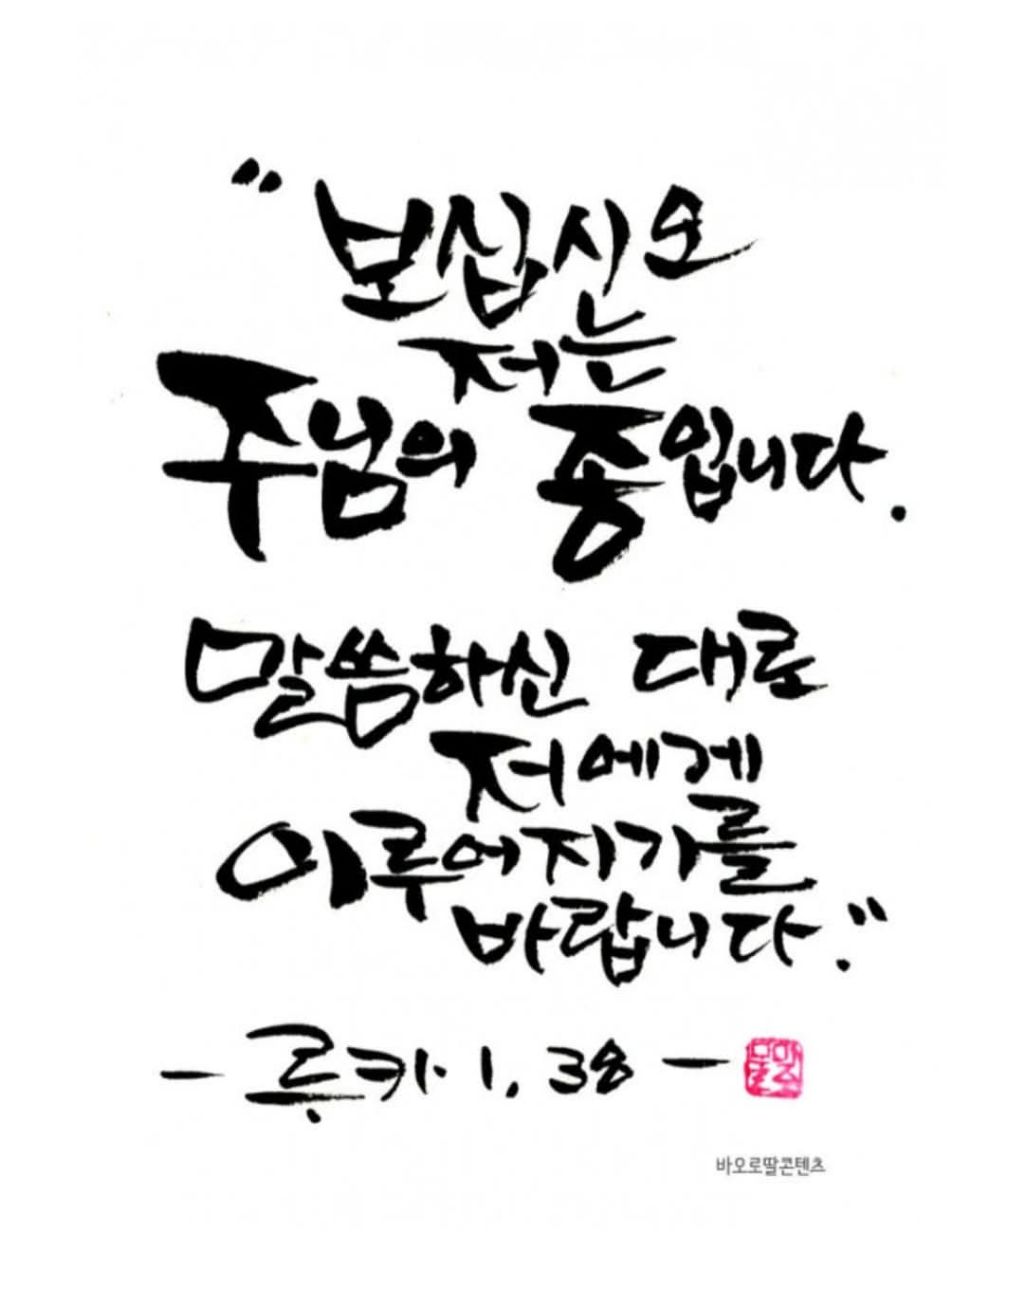 "보십시오
저는
주님의 종입니다.
말씀하신 대로
저에게
이루어지기를
바랍니다."
- 루카 1, 38 -
바오로딸콘텐츠